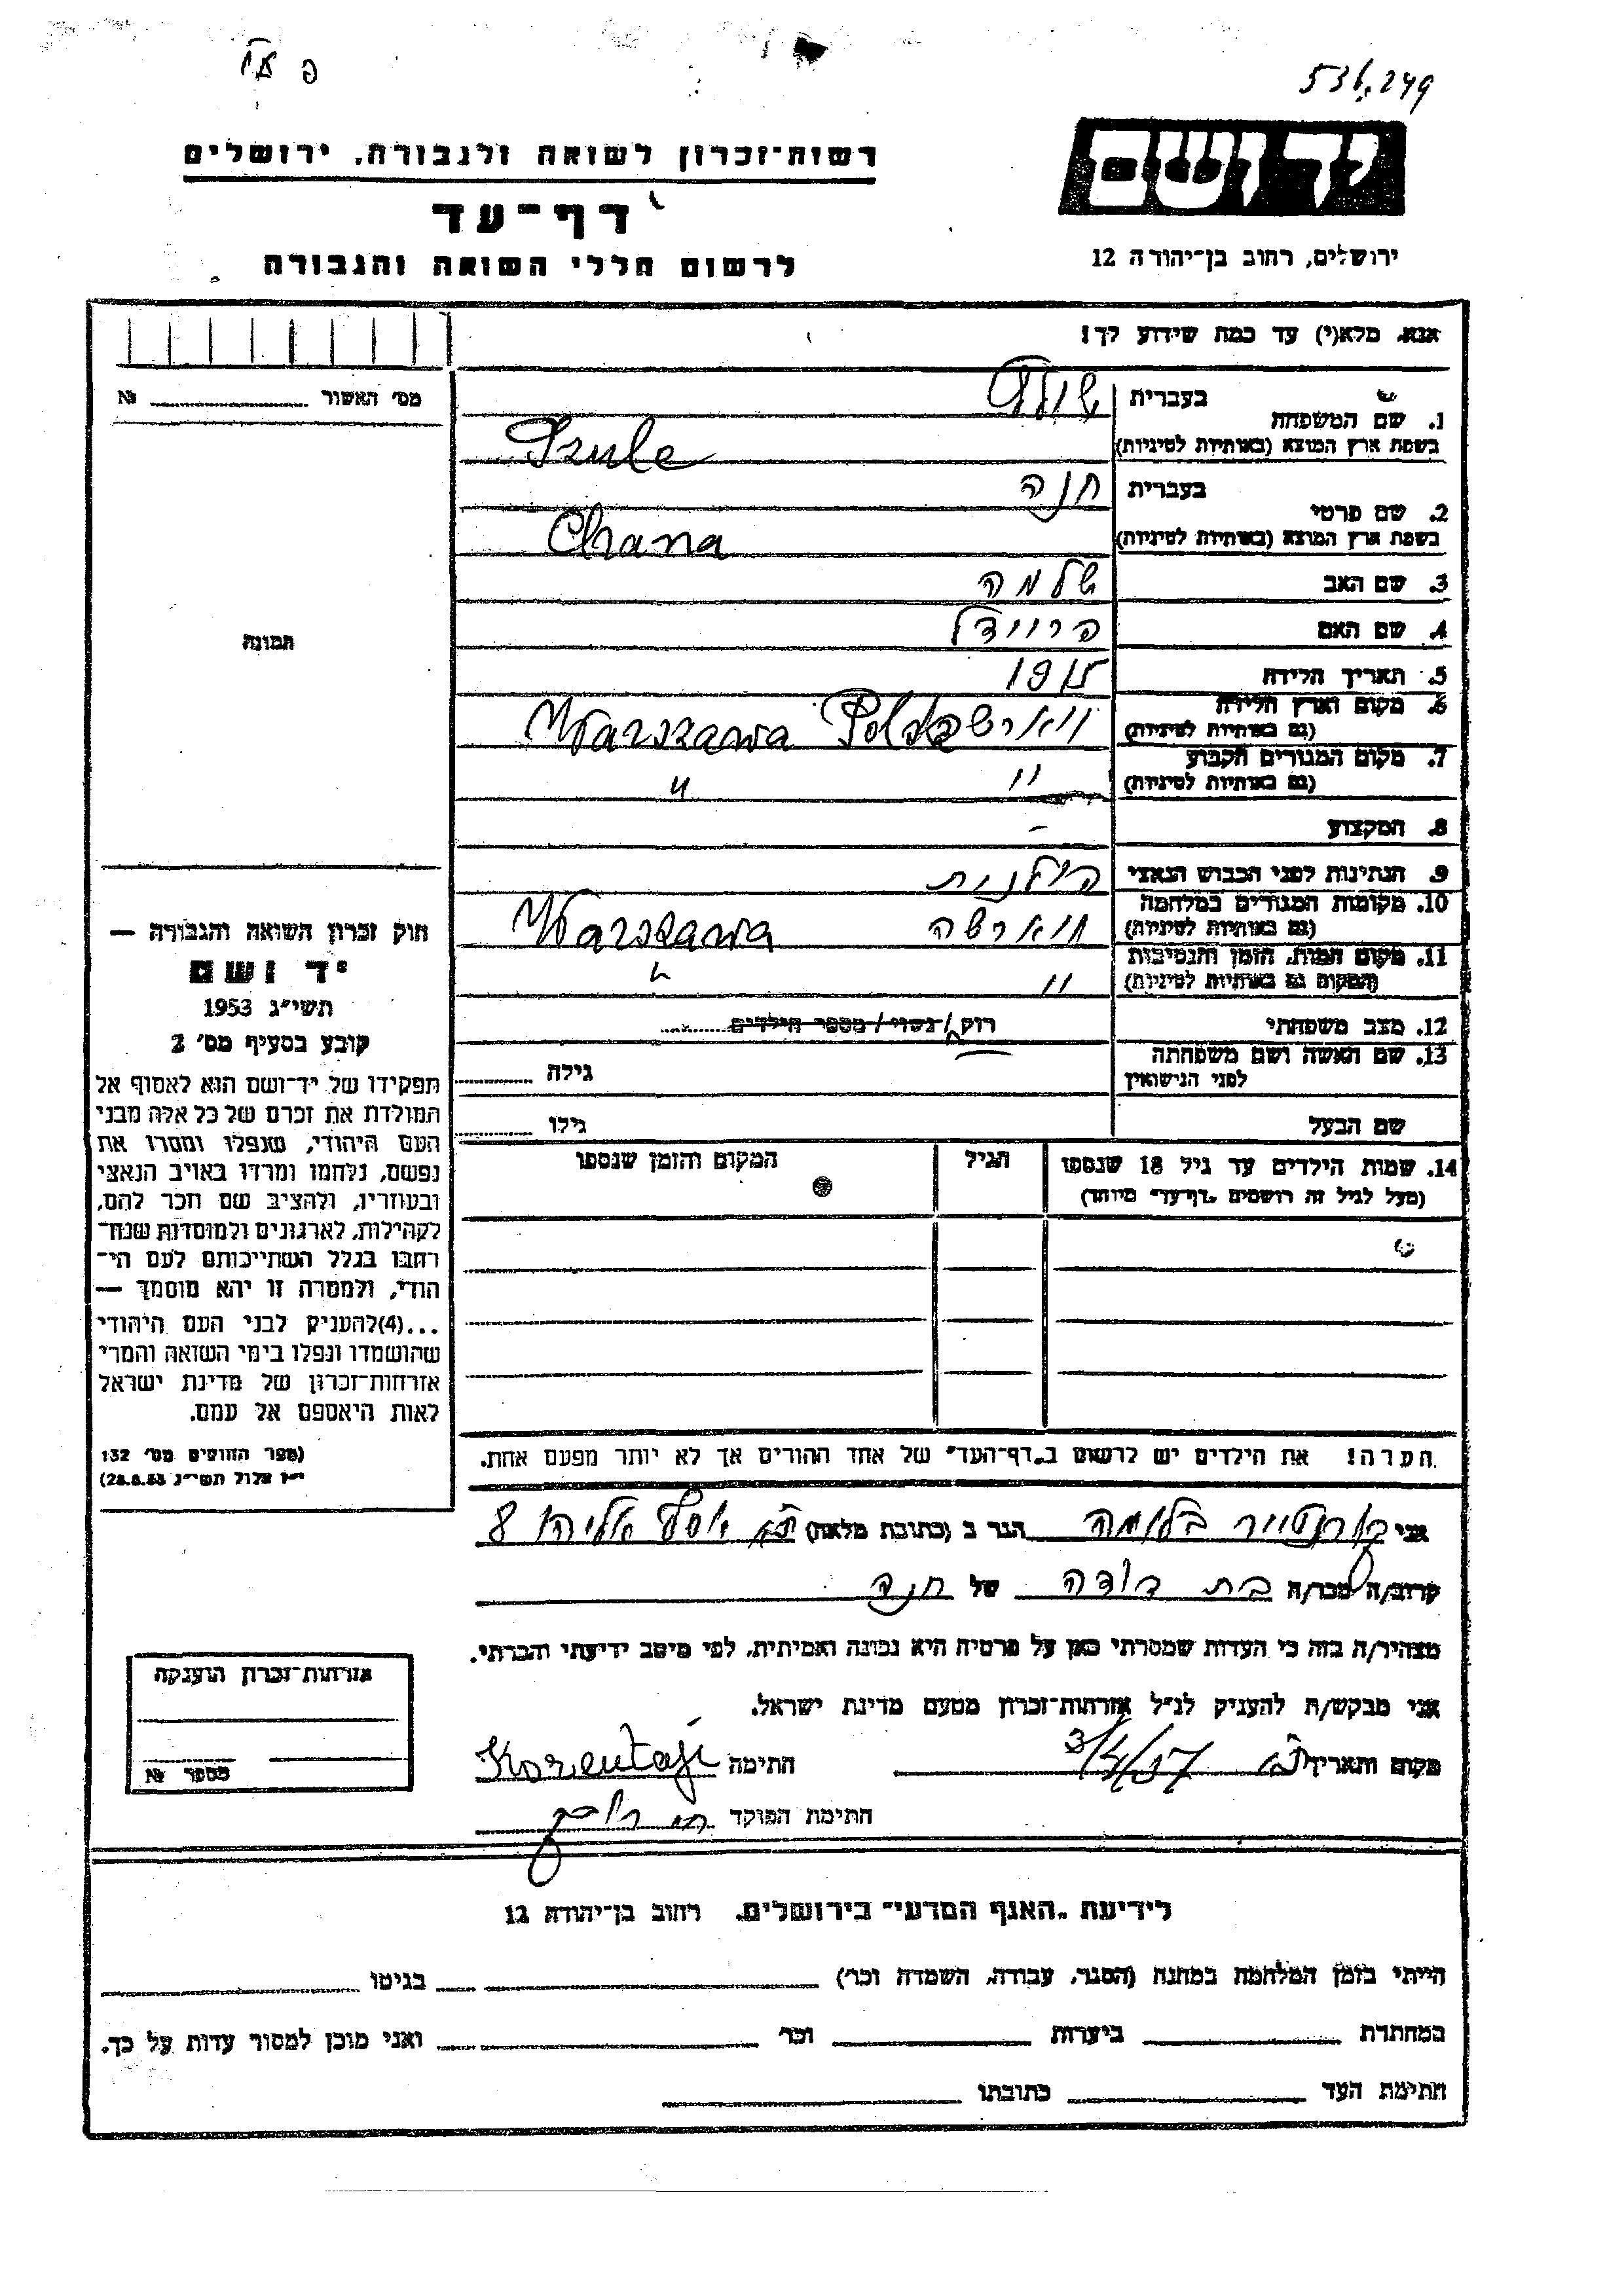 פ
531.249
יד ושם
ירושלים, רחוב בן־יהודה 12
רשות־זכרון לשואה ולגבורה, ירושלים
דף־עד
לרשום חללי השואה והגבורה
אנא, מלא(י) עד כמה שידוע לך!
1. שם המשפחה
בעברית
בשפת ארץ המוצא (באותיות לטיניות)
Szulc
2. שם פרטי
בעברית חנה
בשפת ארץ המוצא (באותיות לטיניות) Chana
3. שם האב שלמה
4. שם האם פריידל
5. תאריך הלידה 1915
6. מקום וארץ הלידה
(גם באותיות לטיניות) Warszawa
7. מקום המגורים הקבוע
(גם באותיות לטיניות) " "
8. המקצוע –
9. הנתינות לפני הכבוש הנאצי פולנית
10. מקומות המגורים במלחמה
(גם באותיות לטיניות) ווארשה Warszawa
11. מקום המות, הזמן והנסיבות
(המקום גם באותיות לטיניות) "
12. מצב משפחתי רוק/נשוי/מספר הילדים
13. שם האשה ושם משפחתה
לפני הנישואין גילה
שם הבעל גילו
14. שמות הילדים עד גיל 18 שנספו
(מעל לגיל זה רושמים „דף־עד” מיוחד)
הגיל
המקום והזמן שנספו
הערה! את הילדים יש לרשום ב„דף־העד” של אחד ההורים אך לא יותר מפעם אחת.
מס' האשור №
תמונה
חוק זכרון השואה והגבורה —
יד ושם
תשי״ג 1953
קובע בסעיף מס' 2
תפקידו של יד־ושם הוא לאסוף אל
המולדת את זכרם של כל אלה מבני
העם היהודי, שנפלו ומסרו את
נפשם, נלחמו ומרדו באויב הנאצי
ובעוזריו, ולהציב שם וזכר להם,
לקהילות, לארגונים ולמוסדות שנח־
רחבו בגלל השתייכותם לעם הי־
הודי, ולמטרה זו יהא מוסמך —
...(4)להעניק לבני העם היהודי
שהושמדו ונפלו בימי השואה והמרי
אזרחות־זכרון של מדינת ישראל
לאות היאספם אל עמם.
(ספר החוקים מס' 132
י״ז אלול תשי״ג 28.8.53)
אני בלומה הגר ב (כתובת מלאה) 8
קרוב/ה מכר/ה בת דודה של חנה
מצהיר/ה בזה כי העדות שמסרתי כאן על פרטיה היא נכונה ואמיתית, לפי מיטב ידיעתי והכרתי.
אני מבקש/ת להעניק לנ״ל אזרחות־זכרון מטעם מדינת ישראל.
מקום ותאריך 3/4/57 חתימה
חתימת הפוקד
אזרחות־זכרון הוענקה
מספר №
לידיעת „האגף המדעי” בירושלים, רחוב בן־יהודה 12
הייתי בזמן המלחמה במחנה (הסגר, עבודה, השמדה וכר') בגיטו
במחתרת ביערות וכר' ואני מוכן למסור עדות על כך.
חתימת העד כתובתו